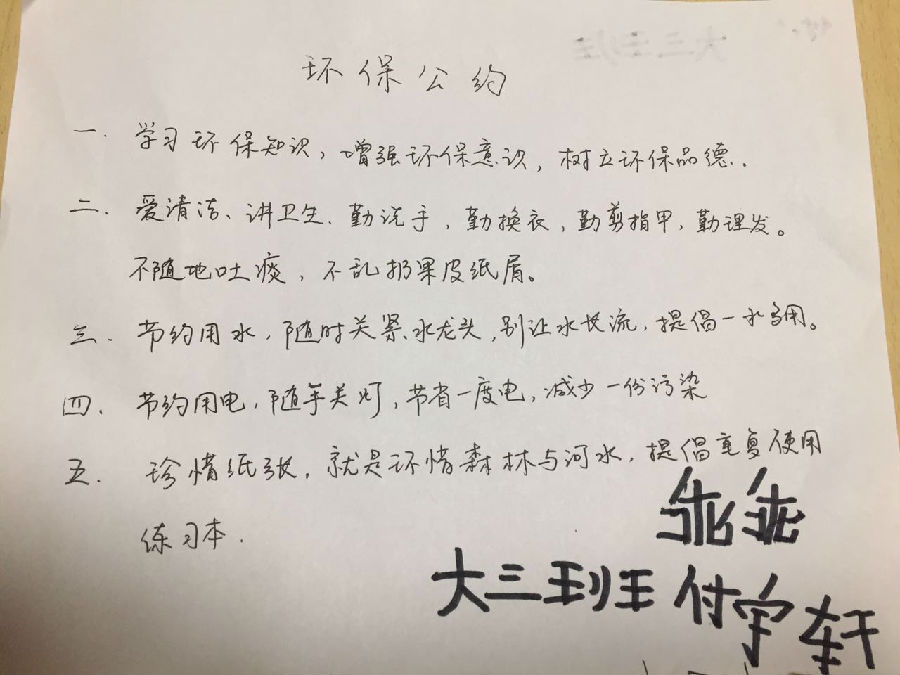 环保公约
一. 学习环保知识, 增强环保意识, 树立环保品德.
二. 爱清洁、讲卫生、勤洗手, 勤换衣, 勤剪指甲, 勤理发。
不随地吐痰, 不乱扔果皮纸屑。
三. 节约用水, 随时关紧水龙头, 别让水长流, 提倡一水多用。
四. 节约用电, 随手关灯, 节省一度电, 减少一份污染
五. 珍惜纸张, 就是环惜森林与河水, 提倡重复使用
练习本.
大三班 付宇轩